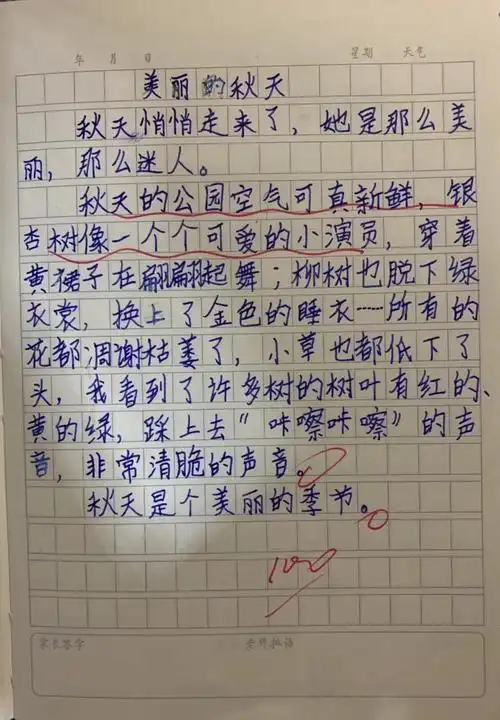 年 月 日 星期 天气
美丽的秋天
秋天悄悄走来了，她是那么美
丽，那么迷人。
秋天的公园空气可真新鲜，银
杏树像一个个可爱的小演员，穿着
黄裙子在翩翩起舞；柳树也脱下绿
衣裳，换上了金色的睡衣……所有的
花都凋谢枯萎了，小草也都低下了
头，我看到了许多树的树叶有红的、
黄的绿，踩上去“咔嚓咔嚓”的声
音，非常清脆的声音。
秋天是个美丽的季节。
100
家长签字 老师批语